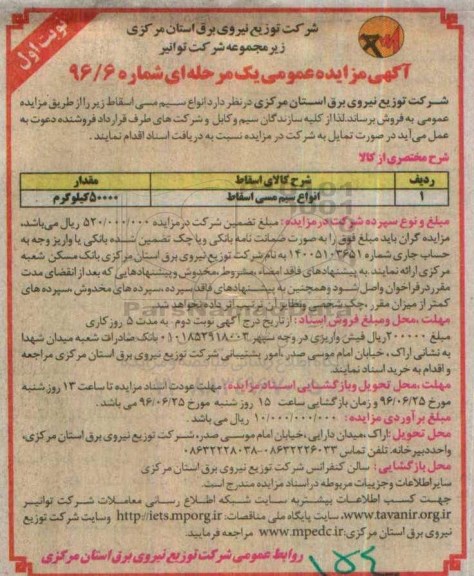 نوبت اول
شرکت توزیع نیروی برق استان مرکزی
زیر مجموعه شرکت توانیر
آگهی مزایده عمومی یک مرحله ای شماره ۹۶/۶
شرکت توزیع نیروی برق استان مرکزی در نظر دارد انواع سیم مسی اسقاط زیر را از طریق مزایده
عمومی به فروش برساند. لذا از کلیه سازندگان سیم و کابل و شرکت های طرف قرارداد فروشنده دعوت به
عمل می آید در صورت تمایل به شرکت در مزایده نسبت به دریافت اسناد اقدام نمایند.
شرح مختصری از کالا
ردیف شرح کالای اسقاط مقدار
۱ انواع سیم مسی اسقاط ۵۰۰۰۰کیلوگرم
مبلغ و نوع سپرده شرکت در مزایده: مبلغ تضمین شرکت در مزایده ۵۲۰/۰۰۰/۰۰۰ ریال می باشد،
مزایده گران باید مبلغ فوق را به صورت ضمانت نامه بانکی و یا چک تضمین شده بانکی یا واریز وجه به
حساب جاری شماره ۱۴۰۰۵۱۰۳۶۵۱ به نام شرکت توزیع نیروی برق استان مرکزی بانک مسکن شعبه
مرکزی ارائه نمایند. به پیشنهادهای فاقد امضاء، مشروط، مخدوش و پیشنهادهایی که بعد از انقضای مدت
مقرر در فراخوان واصل شود و همچنین به پیشنهادهای فاقد سپرده، سپرده های مخدوش، سپرده های
کمتر از میزان مقرر، چک شخصی و نظایر آن ترتیب اثر داده نخواهد شد.
مهلت، محل و مبلغ فروش اسناد: از تاریخ درج آگهی نوبت دوم به مدت ۵ روز کاری
مبلغ ۲۰۰۰۰۰ ریال فیش واریزی در وجه سپهر ۰۱۰۱۸۵۲۹۱۸۰۰۳ بانک صادرات شعبه میدان شهدا
به نشانی اراک، خیابان امام موسی صدر، امور پشتیبانی شرکت توزیع نیروی برق استان مرکزی مراجعه
و اقدام به خرید اسناد نمایند.
مهلت، محل تحویل و بازگشایی اسناد مزایده: مهلت عودت اسناد مزایده تا ساعت ۱۳ روز شنبه
مورخ ۹۶/۰۶/۲۵ و زمان بازگشایی ساعت ۱۵ روز شنبه مورخ ۹۶/۰۶/۲۵ می باشد.
مبلغ برآوردی مزایده: ۱۰/۰۰۰/۰۰۰/۰۰۰ ریال می باشد.
محل تحویل: اراک، میدان دارایی، خیابان امام موسی صدر، شرکت توزیع نیروی برق استان مرکزی،
واحد دبیرخانه. تلفن تماس ۰۸۶۳۲۲۲۶۰۳۳-۰۸۶۳۲۲۲۸۰۳۸
محل بازگشایی: سالن کنفرانس شرکت توزیع نیروی برق استان مرکزی
سایر اطلاعات و جزییات مربوطه در اسناد مزایده مندرج است.
جهت کسب اطلاعات بیشتر به سایت شبکه اطلاع رسانی معاملات شرکت توانیر
www.tavanir.org.ir، سایت پایگاه ملی مناقصات: http://iets.mporg.ir وسایت شرکت توزیع
نیروی برق استان مرکزی: www.mpedc.ir مراجعه فرمایید.
روابط عمومی شرکت توزیع نیروی برق استان مرکزی